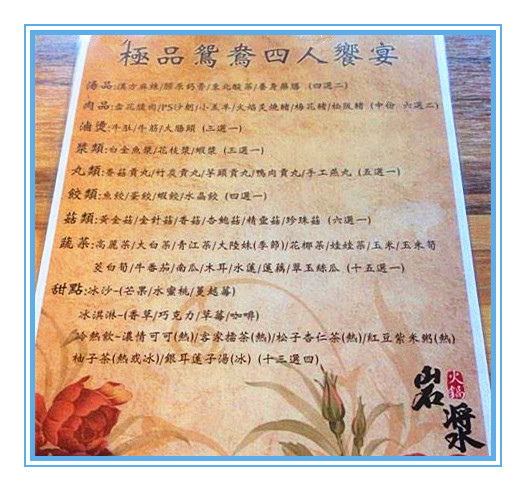 極品鴛鴦四人饗宴
湯品:漢方麻辣/膠原奶香/東北酸菜/養身藥膳 (四選二)
肉品:雪花腹肉/PS沙朗/小羔羊/火焰炙燒豬/梅花豬/松阪豬 (中份 六選二)
滷燙:牛肚/牛筋/大腸頭 (三選一)
漿類:白金魚漿/花枝漿/蝦漿 (三選一)
丸類:香菇貢丸/竹炭貢丸/芋頭貢丸/鴨肉貢丸/手工燕丸 (五選一)
餃類:魚餃/蛋餃/蝦餃/水晶餃 (四選一)
菇類:黃金菇/金針菇/香菇/杏鮑菇/精靈菇/珍珠菇 (六選一)
蔬菜:高麗菜/大白菜/青江菜/大陸妹(季節)/花椰菜/娃娃菜/玉米/玉米筍
茭白筍/牛番茄/南瓜/木耳/水蓮/蓮藕/翠玉絲瓜 (十五選一)
甜點:冰沙~(芒果/水蜜桃/蔓越莓)
冰淇淋~(香草/巧克力/草莓/咖啡)
冷熱飲~濃情可可(熱)/客家擂茶(熱)/松子杏仁茶(熱)/紅豆紫米粥(熱)
柚子茶(熱或冰)/銀耳蓮子湯(冰) (十三選四)
岩漿
火鍋